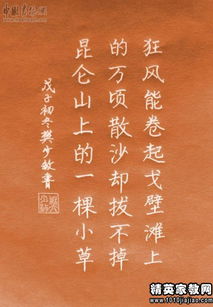 狂风能卷起戈壁滩上
的万顷散沙却拔不掉
昆仑山上的一棵小草
戊子初冬樊少敏书
精英家教网
www.1010jiajiao.com